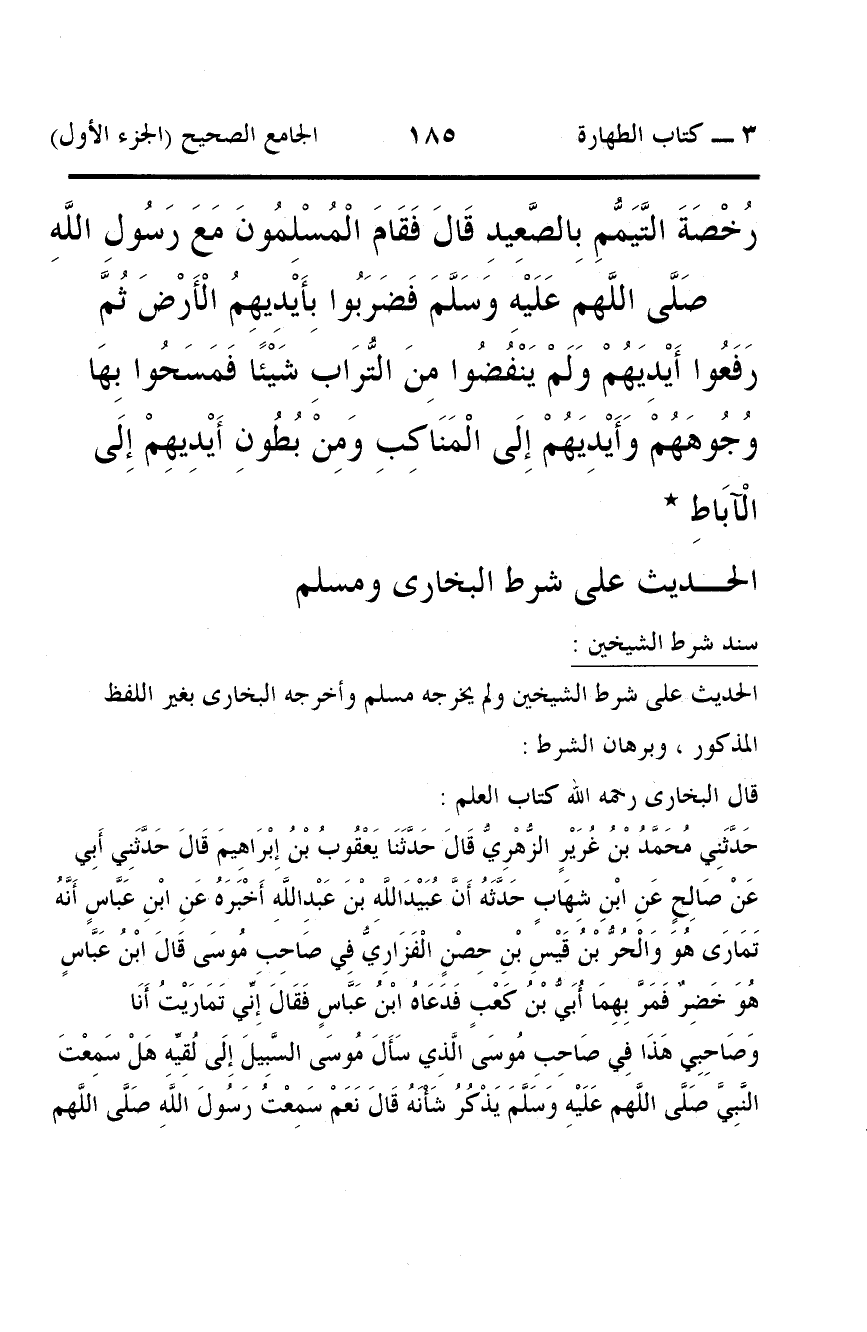 ٣ ــ كتاب الطهارة ١٨٥ الجامع الصحيح (الجزء الأول)
رُخْصَةَ التَّيَمُّمِ بِالصَّعِيدِ قَالَ فَقَامَ الْمُسْلِمُونَ مَعَ رَسُولِ اللَّهِ
صَلَّى اللهم عَلَيْهِ وَسَلَّمَ فَضَرَبُوا بِأَيْدِيهِمُ الْأَرْضَ ثُمَّ
رَفَعُوا أَيْدِيَهُمْ وَلَمْ يَنْفُضُوا مِنَ التُّرَابِ شَيْئًا فَمَسَحُوا بِهَا
وُجُوهَهُمْ وَأَيْدِيَهُمْ إِلَى الْمَنَاكِبِ وَمِنْ بُطُونِ أَيْدِيهِمْ إِلَى
الْآبَاطِ *
الحـــديث على شرط البخارى ومسلم
سند شرط الشيخين :
الحديث على شرط الشيخين ولم يخرجه مسلم وأخرجه البخارى بغير اللفظ
المذكور ، وبرهان الشرط :
قال البخارى رحمه الله كتاب العلم :
حَدَّثَنِي مُحَمَّدُ بْنُ غُرَيْرٍ الزُّهْرِيُّ قَالَ حَدَّثَنَا يَعْقُوبُ بْنُ إِبْرَاهِيمَ قَالَ حَدَّثَنِي أَبِي
عَنْ صَالِحٍ عَنِ ابْنِ شِهَابٍ حَدَّثَهُ أَنَّ عُبَيْدَاللَّهِ بْنَ عَبْدِاللَّهِ أَخْبَرَهُ عَنِ ابْنِ عَبَّاسٍ أَنَّهُ
تَمَارَى هُوَ وَالْحُرُّ بْنُ قَيْسِ بْنِ حِصْنٍ الْفَزَارِيُّ فِي صَاحِبِ مُوسَى قَالَ ابْنُ عَبَّاسٍ
هُوَ خَضِرٌ فَمَرَّ بِهِمَا أُبَيُّ بْنُ كَعْبٍ فَدَعَاهُ ابْنُ عَبَّاسٍ فَقَالَ إِنِّي تَمَارَيْتُ أَنَا
وَصَاحِبِي هَذَا فِي صَاحِبِ مُوسَى الَّذِي سَأَلَ مُوسَى السَّبِيلَ إِلَى لُقِيِّهِ هَلْ سَمِعْتَ
النَّبِيَّ صَلَّى اللهم عَلَيْهِ وَسَلَّمَ يَذْكُرُ شَأْنَهُ قَالَ نَعَمْ سَمِعْتُ رَسُولَ اللَّهِ صَلَّى اللهم